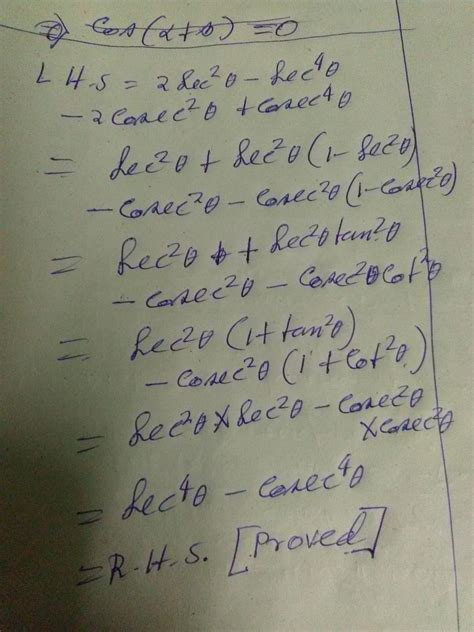 ⇒ cos(α+θ) = 0
L H.S = 2 sec²θ - sec⁴θ
- 2cosec²θ + cosec⁴θ
= sec²θ + sec²θ (1 - sec²θ)
- cosec²θ - cosec²θ (1 - cosec²θ)
= sec²θ + sec²θ tan²θ
- cosec²θ - cosec²θ cot²θ
= sec²θ (1 + tan²θ)
- cosec²θ (1 + cot²θ)
= sec²θ × sec²θ - cosec²θ
× cosec²θ
= sec⁴θ - cosec⁴θ
= R.H.S. [Proved]